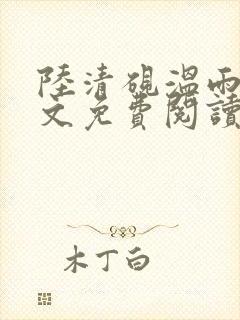 陸清硯溫雨
文免費閱讀
木丁白